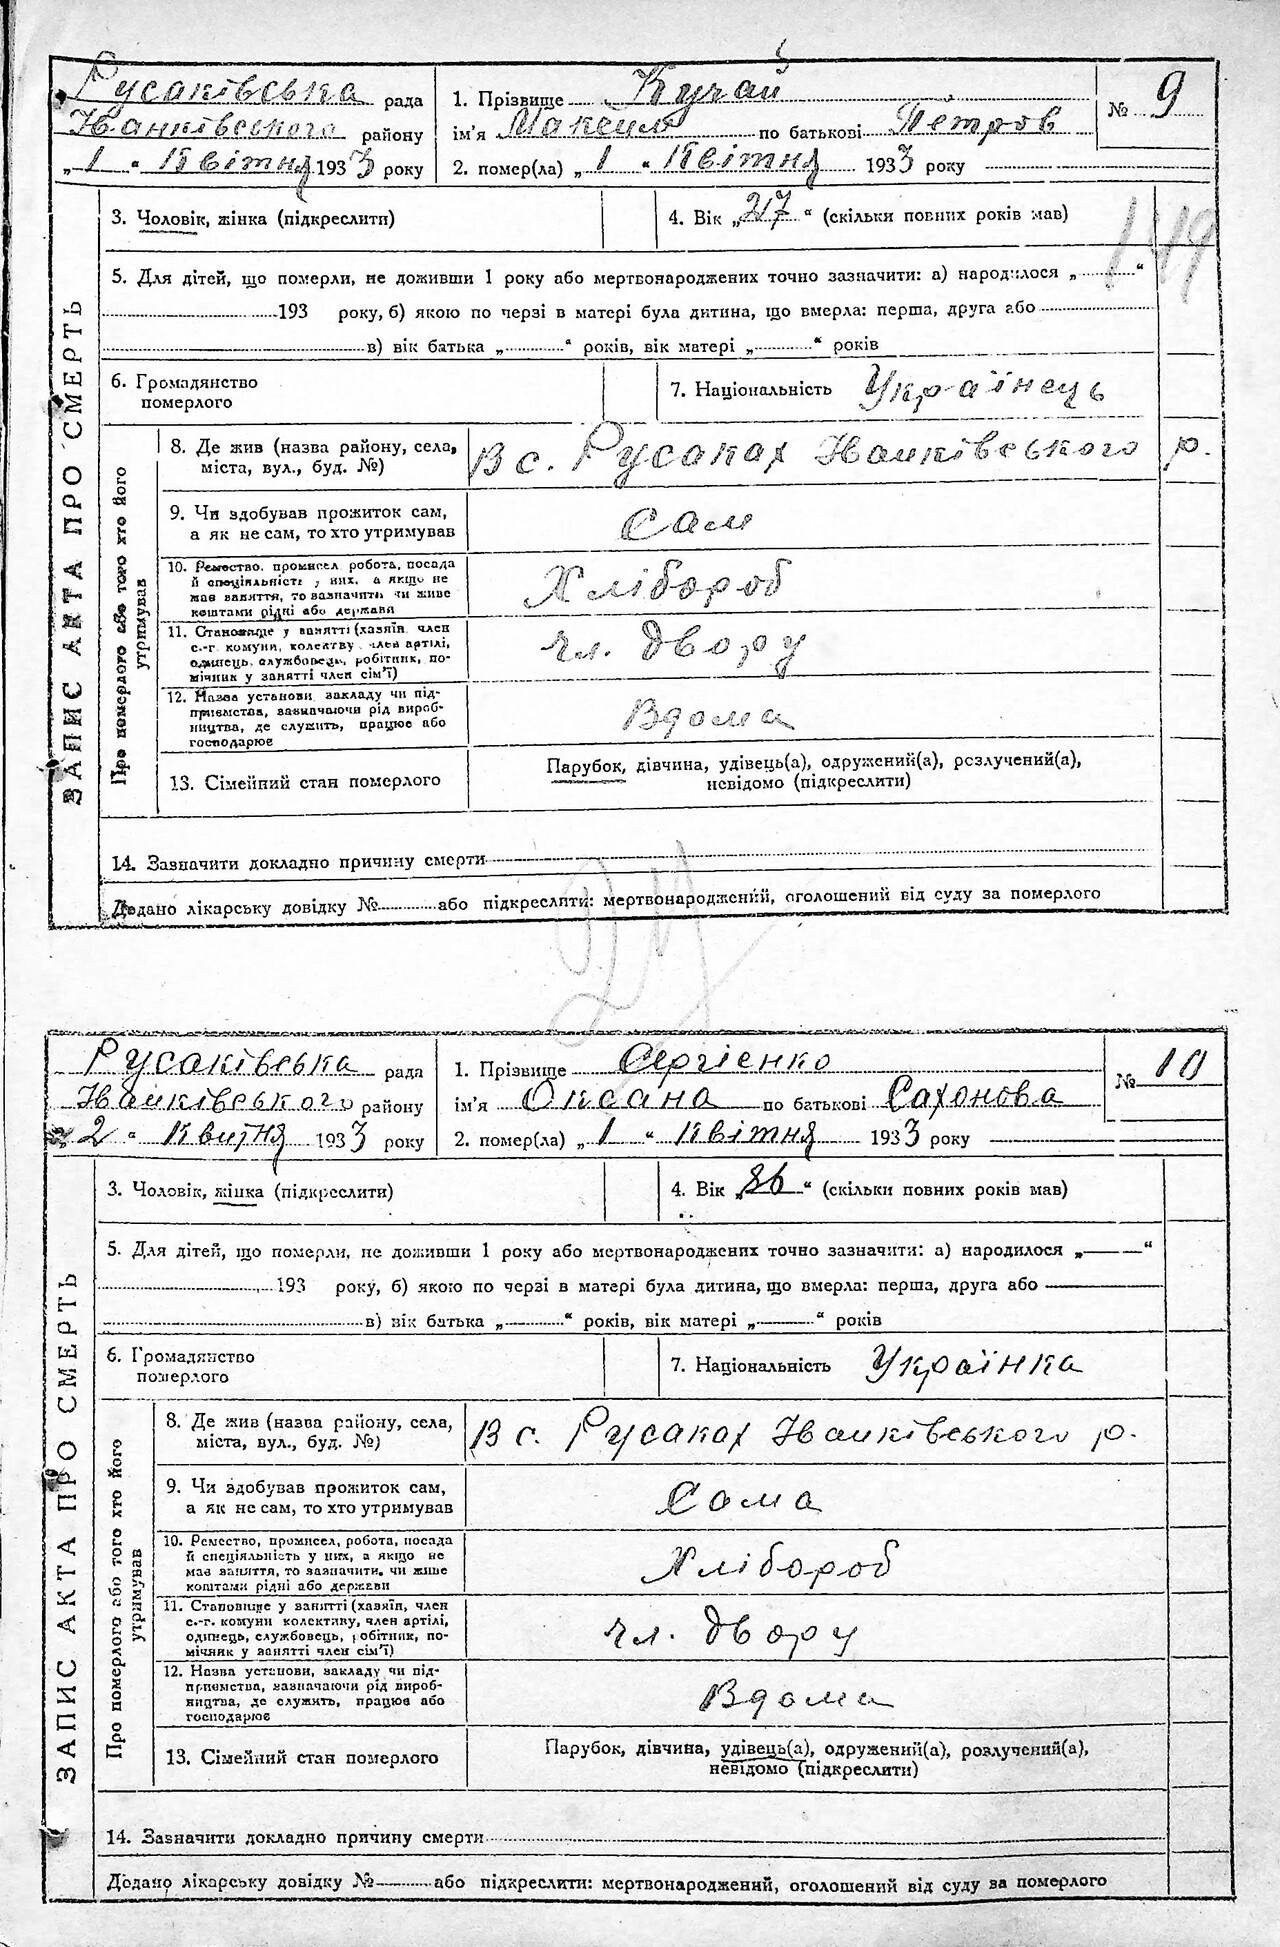 Русаківська рада
Иванківського району
„1“ Квітня 1933 року
1. Прізвище Кучай
ім'я Максим по батькові Петров
2. помер(ла) „1“ Квітня 1933 року
№ 9
3. Чоловік, жінка (підкреслити)
4. Вік „27“ (скільки повних років мав)
149
5. Для дітей, що померли, не доживши 1 року або мертвонароджених точно зазначити: а) народилося „ “
193 року, б) якою по черзі в матері була дитина, що вмерла: перша, друга або
в) вік батька „ “ років, вік матері „ “ років
6. Громадянство
померлого
7. Національність Українець
ЗАПИС АКТА ПРО СМЕРТЬ
Про померлого або того хто його
утримував
8. Де жив (назва району, села,
міста, вул., буд. №)
В с. Русаках Иванківського р.
9. Чи здобував прожиток сам,
а як не сам, то хто утримував
Сам
10. Ремество, промисел, робота, посада
й спеціальність у них, а якщо не
мав заняття, то зазначити, чи живе
коштами рідні або держави
Хлібороб
11. Становище у занятті (хазяїн, член
с.-г. комуни, колективу, член артілі,
одинець, службовець, робітник, по-
мічник у занятті член сім'ї)
чл. двору
12. Назва установи, закладу чи під-
приємства, зазначаючи рід вироб-
ництва, де служить, працює або
господарює
Вдома
13. Сімейний стан померлого
Парубок, дівчина, удівець(а), одружений(а), розлучений(а),
невідомо (підкреслити)
14. Зазначити докладно причину смерти
Додано лікарську довідку № або підкреслити: мертвонароджений, оголошений від суду за померлого
Русаківська рада
Иванківського району
„2“ Квитня 1933 року
1. Прізвище Сергієнко
ім'я Оксана по батькові Сахонова
2. помер(ла) „1“ Квітня 1933 року
№ 10
3. Чоловік, жінка (підкреслити)
4. Вік „86“ (скільки повних років мав)
5. Для дітей, що померли, не доживши 1 року або мертвонароджених точно зазначити: а) народилося „ “
193 року, б) якою по черзі в матері була дитина, що вмерла: перша, друга або
в) вік батька „ “ років, вік матері „ “ років
6. Громадянство
померлого
7. Національність Українка
ЗАПИС АКТА ПРО СМЕРТЬ
Про померлого або того хто його
утримував
8. Де жив (назва району, села,
міста, вул., буд. №)
В с. Русаках Иванківського р.
9. Чи здобував прожиток сам,
а як не сам, то хто утримував
Сама
10. Ремество, промисел, робота, посада
й спеціальність у них, а якщо не
мав заняття, то зазначити, чи живе
коштами рідні або держави
Хлібороб
11. Становище у занятті (хазяїн, член
с.-г. комуни колективу, член артілі,
одинець, службовець, робітник, по-
мічник у занятті член сім'ї)
чл. двору
12. Назва установи, закладу чи під-
приємства, зазначаючи рід вироб-
ництва, де служить, працює або
господарює
Вдома
13. Сімейний стан померлого
Парубок, дівчина, удівець(а), одружений(а), розлучений(а),
невідомо (підкреслити)
14. Зазначити докладно причину смерти
Додано лікарську довідку № або підкреслити: мертвонароджений, оголошений від суду за померлого